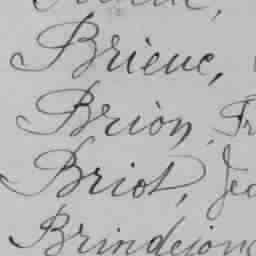 Brieuc,
Brion, Fr
Briot, Jea
Brindejonc